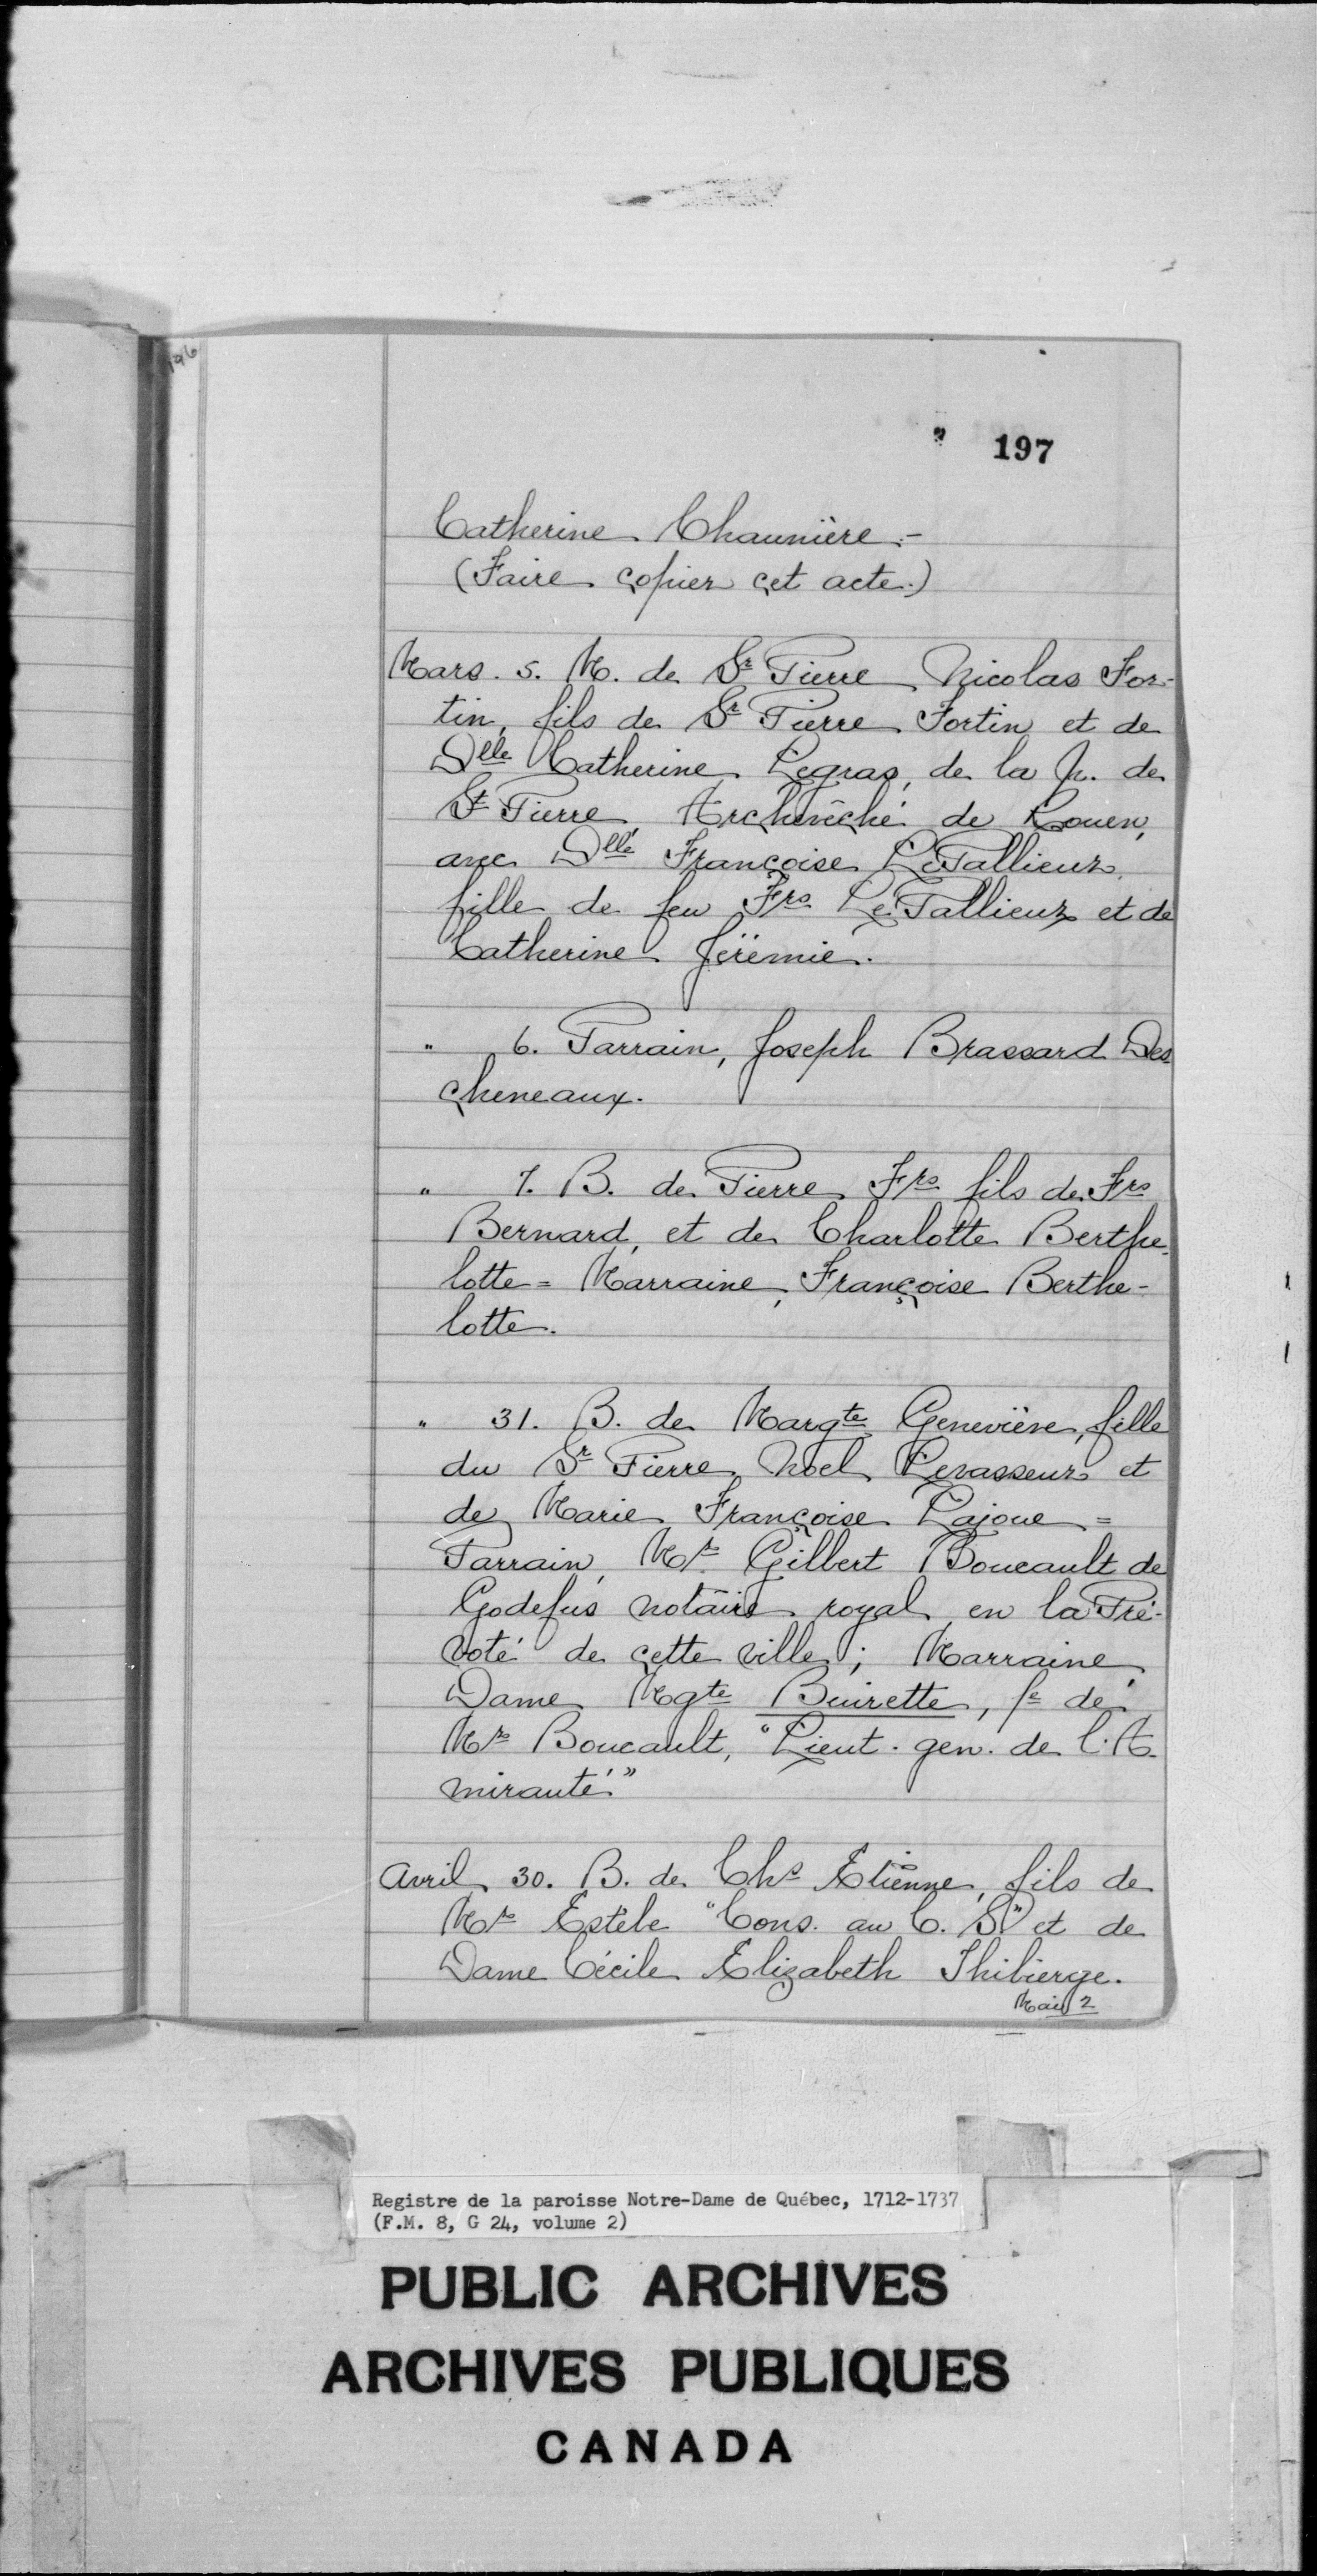 196
197
Catherine Chaunière.-
(Faire copier cet acte.)
Mars. 5. M. de Sr Pierre Nicolas For-
tin, fils de Sr Pierre Fortin et de
Dlle Catherine Legras, de la p. de
St Pierre Archévêché de Rouen,
avec Dlle Françoise LeTallieur,
fille de feu Frs LeTallieur et de
Catherine Jérémie.
" 6. Parrain, Joseph Brassard Des
cheneaux.
" 7. B. de Pierre Frs fils de Frs
Bernard, et de Charlotte Berthe-
lotte = Marraine, Françoise Berthe-
lotte.
" 31. B. de Margte Geneviève, fille
du Sr Pierre Noel Levasseur et
de Marie Françoise Lajoue =
Parrain, Mr Gilbert Boucault de
Godefus notaire royal en la Pré-
voté de cette ville; Marraine,
Dame Mgte Buirette, fe de
Mr Boucault, "Lieut. gen. de l'A-
mirauté"
Avril 30. B. de Chs Etienne, fils de
Mr Estèbe "Cons. au C. S." et de
Dame Cécile Elizabeth Thibierge.
Mai 2
Registre de la paroisse Notre-Dame de Québec, 1712-1737
(F.M. 8, G 24, volume 2)
PUBLIC ARCHIVES
ARCHIVES PUBLIQUES
CANADA